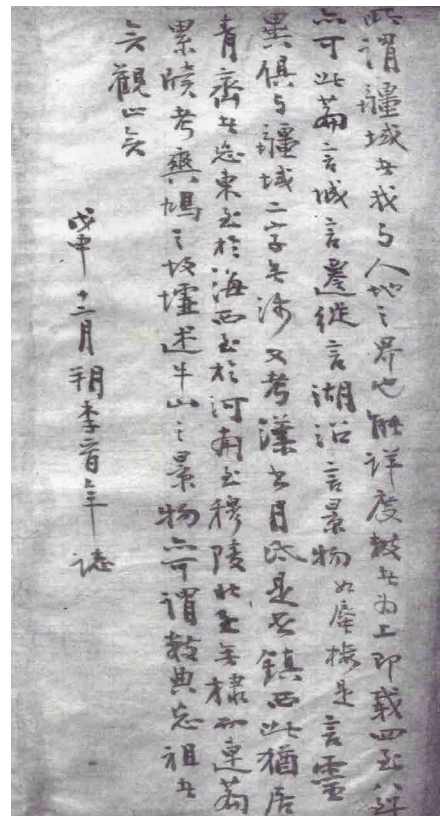 此謂疆域者我与人地之界也能詳度數者为上即載四至八
亦可此篇言城言遷徙言湖沼言景物如蜃樓是言靈
異俱与疆域二字无涉又考漢书月氏是也鎮西此猶居
青齊者忘東至於海西至於河南至穆陵北至無棣而連篇
累牘考爽鳩之故墟述牛山之景物亦可謂數典忘祖者
矣觀止矣
戊申十二月朔李年誌